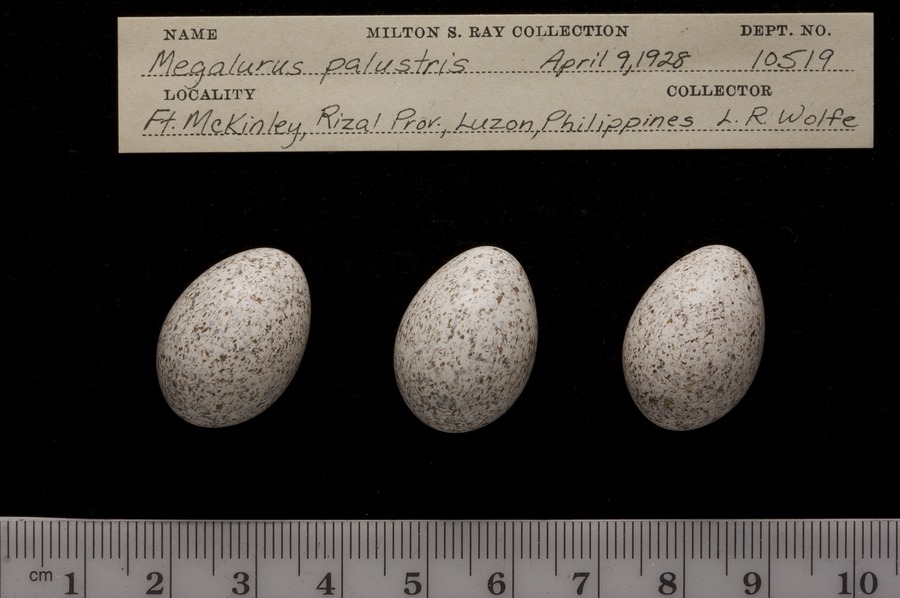 NAME MILTON S. RAY COLLECTION DEPT. NO.
Megalurus palustris April 9, 1928 10519
LOCALITY COLLECTOR
Ft. McKinley, Rizal Prov., Luzon, Philippines L. R. Wolfe
cm 1 2 3 4 5 6 7 8 9 10